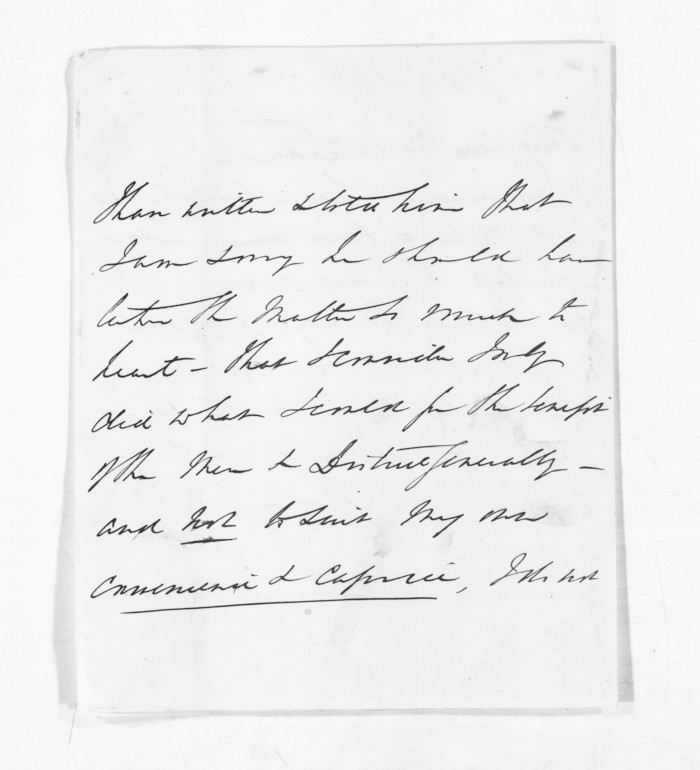 I have written & told him that
I am sorry he should have
taken the matter so much to
heart – that I consider I only
did what I could for the benefit
of the Men & District generally –
and not to suit my own
convenience & caprice, I do not